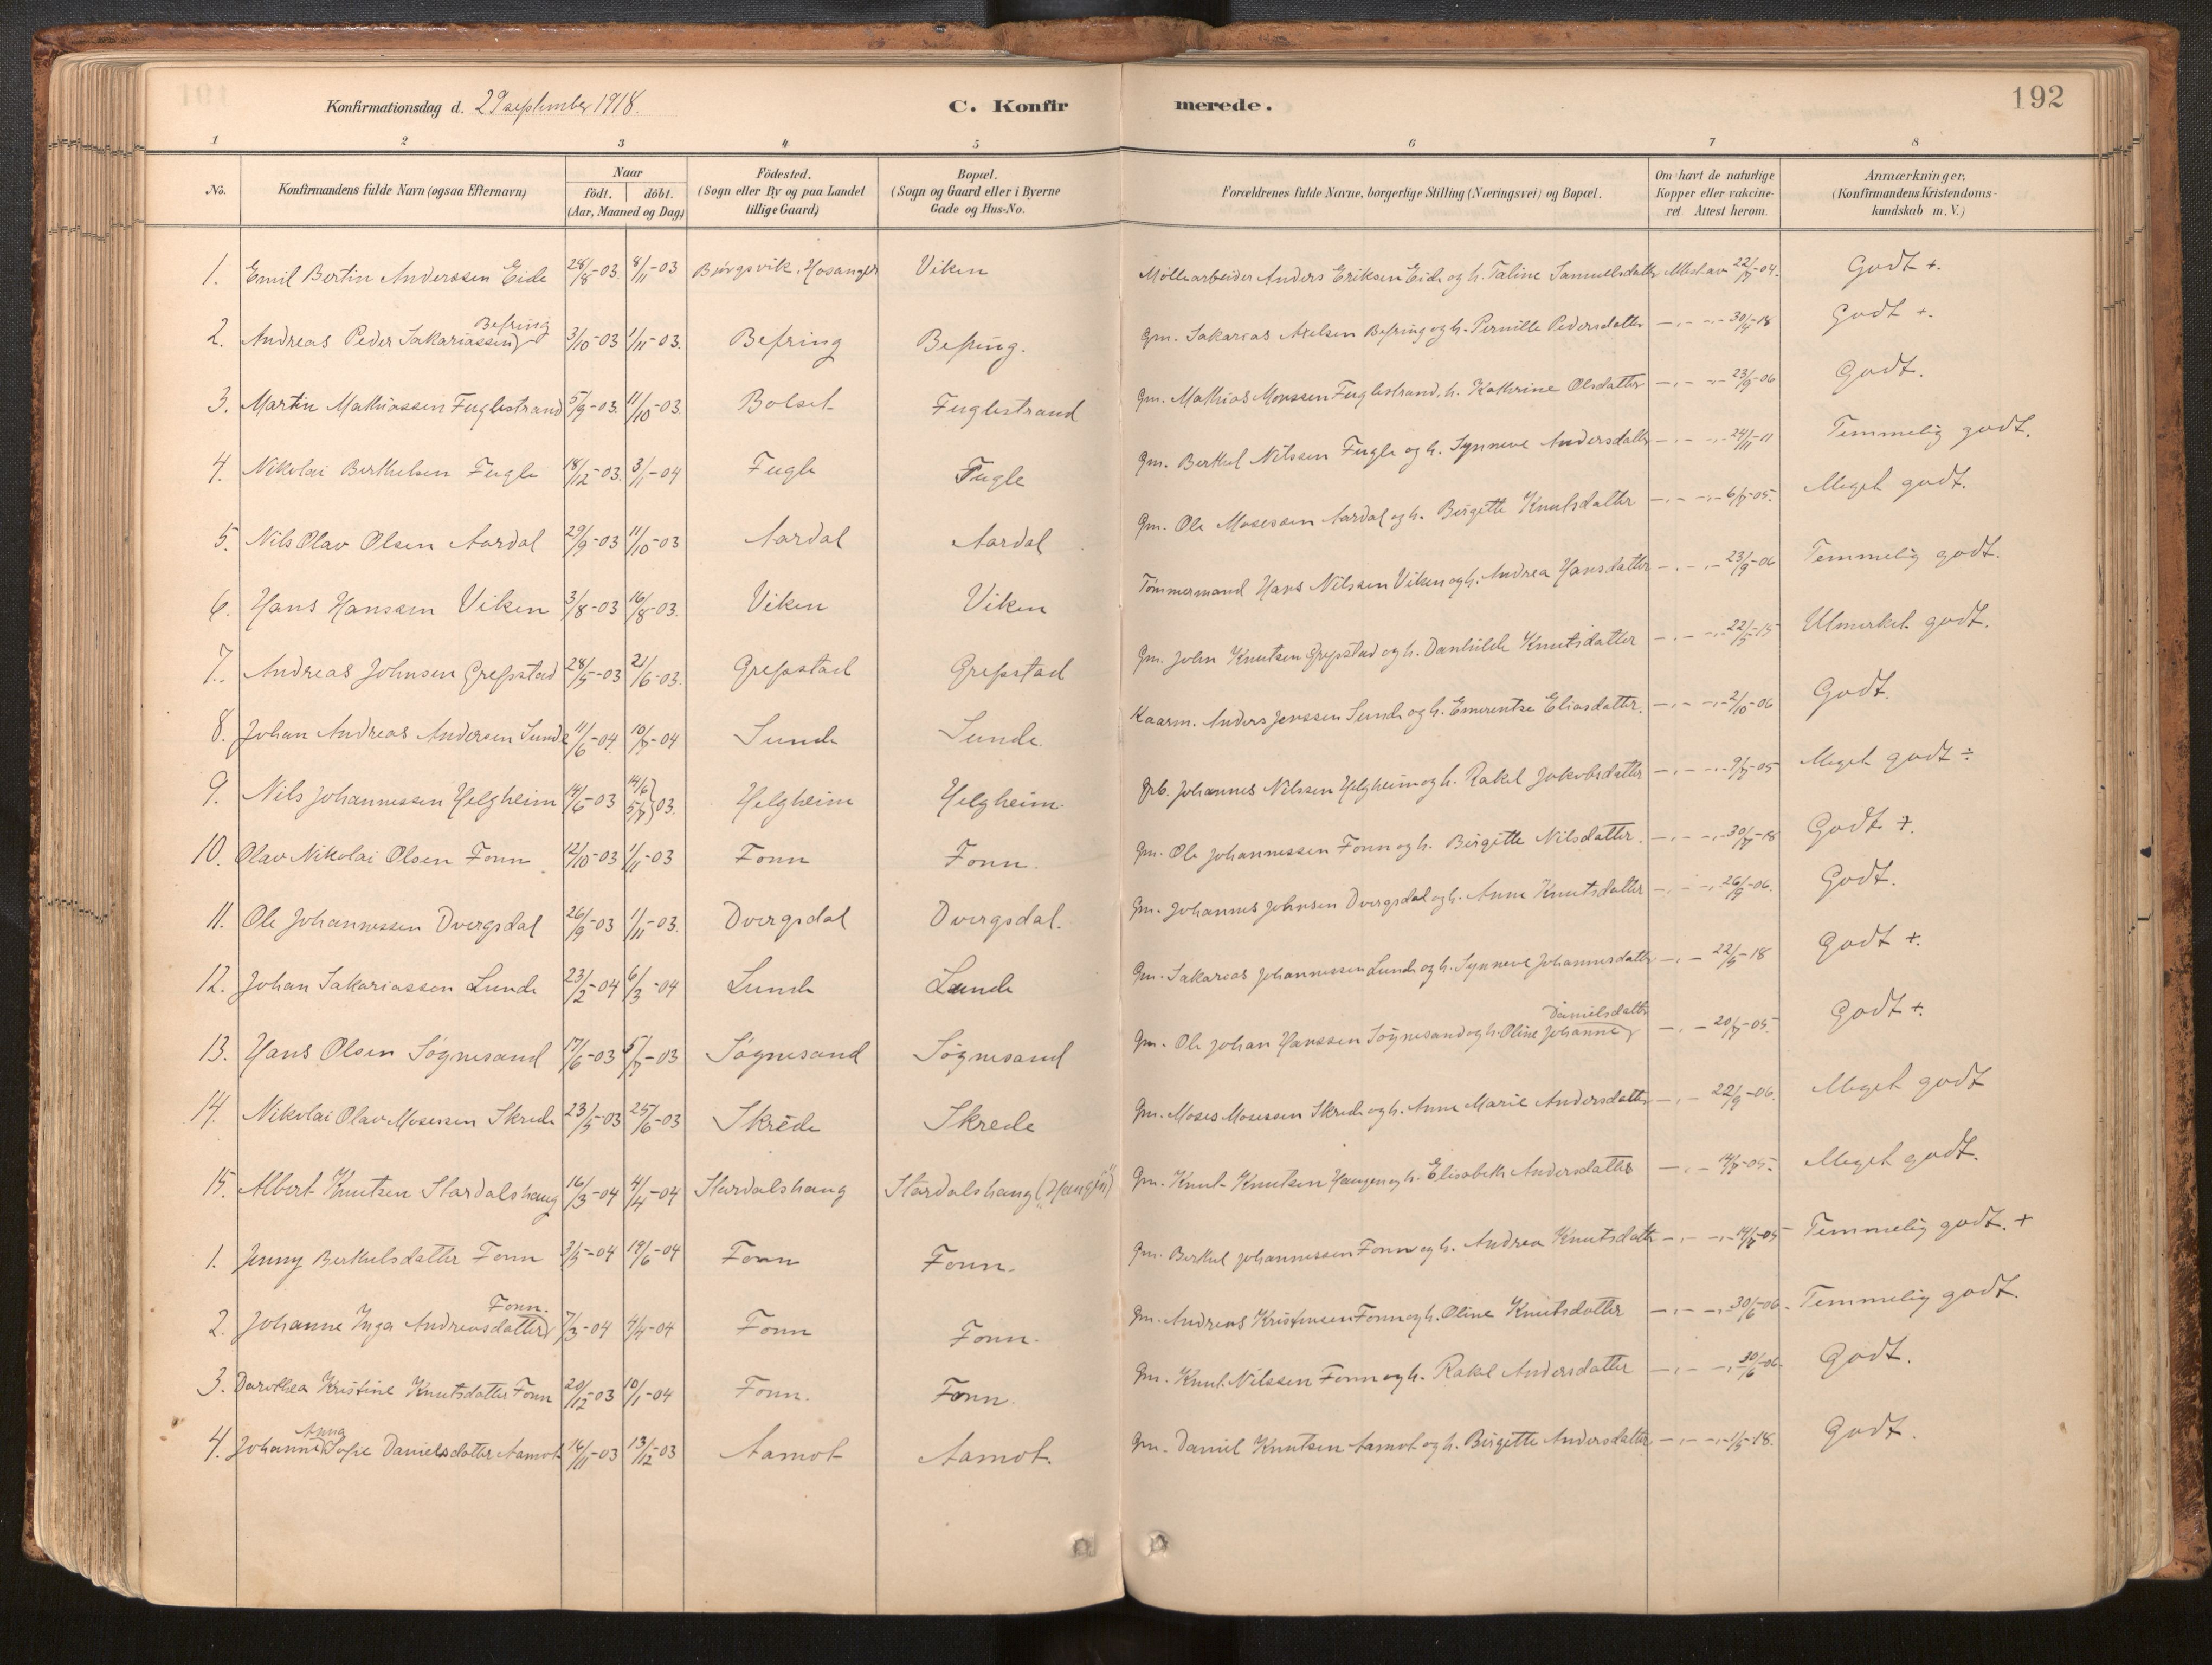 Konfirmationsdag d. 29 september 1918. C. Konfirmerede. 192
1 2 3 4 5 6 7 8
No. Konfirmandens fulde Navn (ogsaa Efternavn) Naar födt. döbt. (Aar, Maaned og Dag) Födested. (Sogn eller By og paa Landet tillige Gaard) Bopæl. (Sogn og Gaard eller i Byerne Gade og Hus-No. Forældrenes fulde Navne, borgerlige Stilling (Næringsvei) og Bopæl. Om havt de naturlige Kopper eller vakcineret. Attest herom. Anmærkninger, (Konfirmandens Kristendomskundskab m. V.)
1. Emil Bertin Anderssen Eide 28/8-03. 8/11-03 Bjørgsvik, Hosanger Viken Møllearbeider Anders Eriksen Eide og h. Taline Samuelsdatter Attest av 22/7-04. Godt +.
2. Andreas Peder Sakariassen Befring 3/10-03 1/11-03. Befring Befring. Gm. Sakarias Axelsen Befring og h. Pernille Pedersdatter —.— -.- 30/4-18 Godt +.
3. Martin Mathiassen Fuglestrand 5/9-03. 11/10-03. Bolset Fuglestrand Gm. Mathias Monssen Fuglestrand, h. Kathrine Olsdatter —.— -.- 23/9-06 Godt.
4. Nikolai Berthelsen Fugle 18/12-03. 3/1-04 Fugle Fugle Gm. Berthel Nilssen Fugle og h. Synneve Andersdatter —.— -.- 24/11-11 Temmelig godt.
5. Nils Olav Olsen Aardal 29/9-03 11/10-03 Aardal Aardal Gm. Ole Mosessen Aardal og h. Birgitte Knutsdatter —.— -.- 6/7-05. Meget godt.
6. Hans Hanssen Viken 3/8-03 16/8-03. Viken Viken Tømmermand Hans Nilssen Viken og h. Andrea Hansdatter —.— -.- 23/9-06 Temmelig godt.
7. Andreas Johnsen Grepstad 28/5-03 21/6-03. Grepstad Grepstad Gm. John Knutsen Grepstad og h. Danhilde Knutsdatter —.— -.- 22/5-15 Utmerket godt.
8. Johan Andreas Andersen Sunde 11/6-04. 10/7-04 Sunde Sunde. Kaarm. Anders Jenssen Sunde og h. Emerentse Eliasdatter. —.— -.- 2/10-06 Godt.
9. Nils Johannessen Helgheim 14/6-03 14/6 5/7}03. Helgheim Helgheim. Grb. Johannes Nilssen Helgheim og h. Rakel Jakobsdatter —.— -.- 9/7-05 Meget godt ÷
10. Olav Nikolai Olsen Fonn 12/10-03 1/11-03 Fonn Fonn. Gm. Ole Johannessen Fonn og h. Birgitte Nilsdatter. —.— -.- 30/7-18 Godt +.
11. Ole Johannessen Dvergsdal 26/9-03 1/11-03. Dvergsdal Dvergsdal. Gm. Johannes Johnsen Dvergsdal og h. Anne Knutsdatter —.— -.- 26/9-06. Godt.
12. Johan Sakariassen Lunde 23/2-04 6/3-04 Lunde Lunde Gm. Sakarias Johannessen Lunde og h. Synneve Johannesdatter —.— 22/5-18 Godt +.
13. Hans Olsen Søgnesand 17/6-03 5/7-03 Søgnesand Søgnesand Gm. Ole Johan Hanssen Søgnesand og h. Oline Johanne Danielsdatter —.— 20/7-05. Godt +.
14. Nikolai Olav Mosessen Skrede 23/5-03 25/6-03 Skrede Skrede Gm. Moses Mosessen Skrede og h. Anne Marie Andersdatter —.— 22/9-06. Meget godt
15. Albert Knutsen Stardalshaug 16/3-04 4/4-04 Stardalshaug Stardalshaug („Haugen") Gm. Knut Knutsen Haugen og h. Elisabeth Andersdatter —.— 14/7-05. Meget godt.
1. Jenny Berthelsdatter Fonn 3/5-04 19/6-04 Fonn Fonn. Gm. Berthel Johannessen Fonn og h. Andrea Knutsdatter —.— -.- 14/7-05 Temmelig godt. +
2. Johanne Inga Andreasdatter Fonn. 7/3-04 4/4-04 Fonn Fonn. Gm. Andreas Kristensen Fonn og h. Oline Knutsdatter —.— -.- 30/6-06. Temmelig godt.
3. Dorothea Kristine Knutsdatter Fonn 20/12-03 10/1-04 Fonn. Fonn. Gm. Knut Nilssen Fonn og h. Rakel Andersdatter —.— -.- 30/6-06. Godt.
4. Johanne Anna Sofie Danielsdatter Aamot 16/11-03 13/12-03 Aamot Aamot. Gm. Daniel Knutsen Aamot og h. Birgitte Andersdatter —.— -.- 1/5-18. Godt.